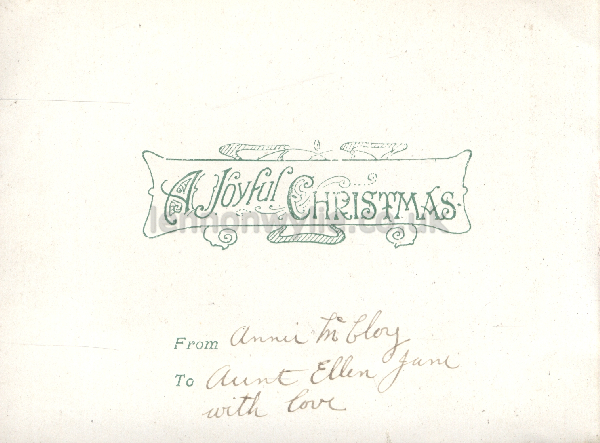 A JOYFUL CHRISTMAS.
lennonwylie.co.uk
From Annie McCloy
To Aunt Ellen Jane
with love